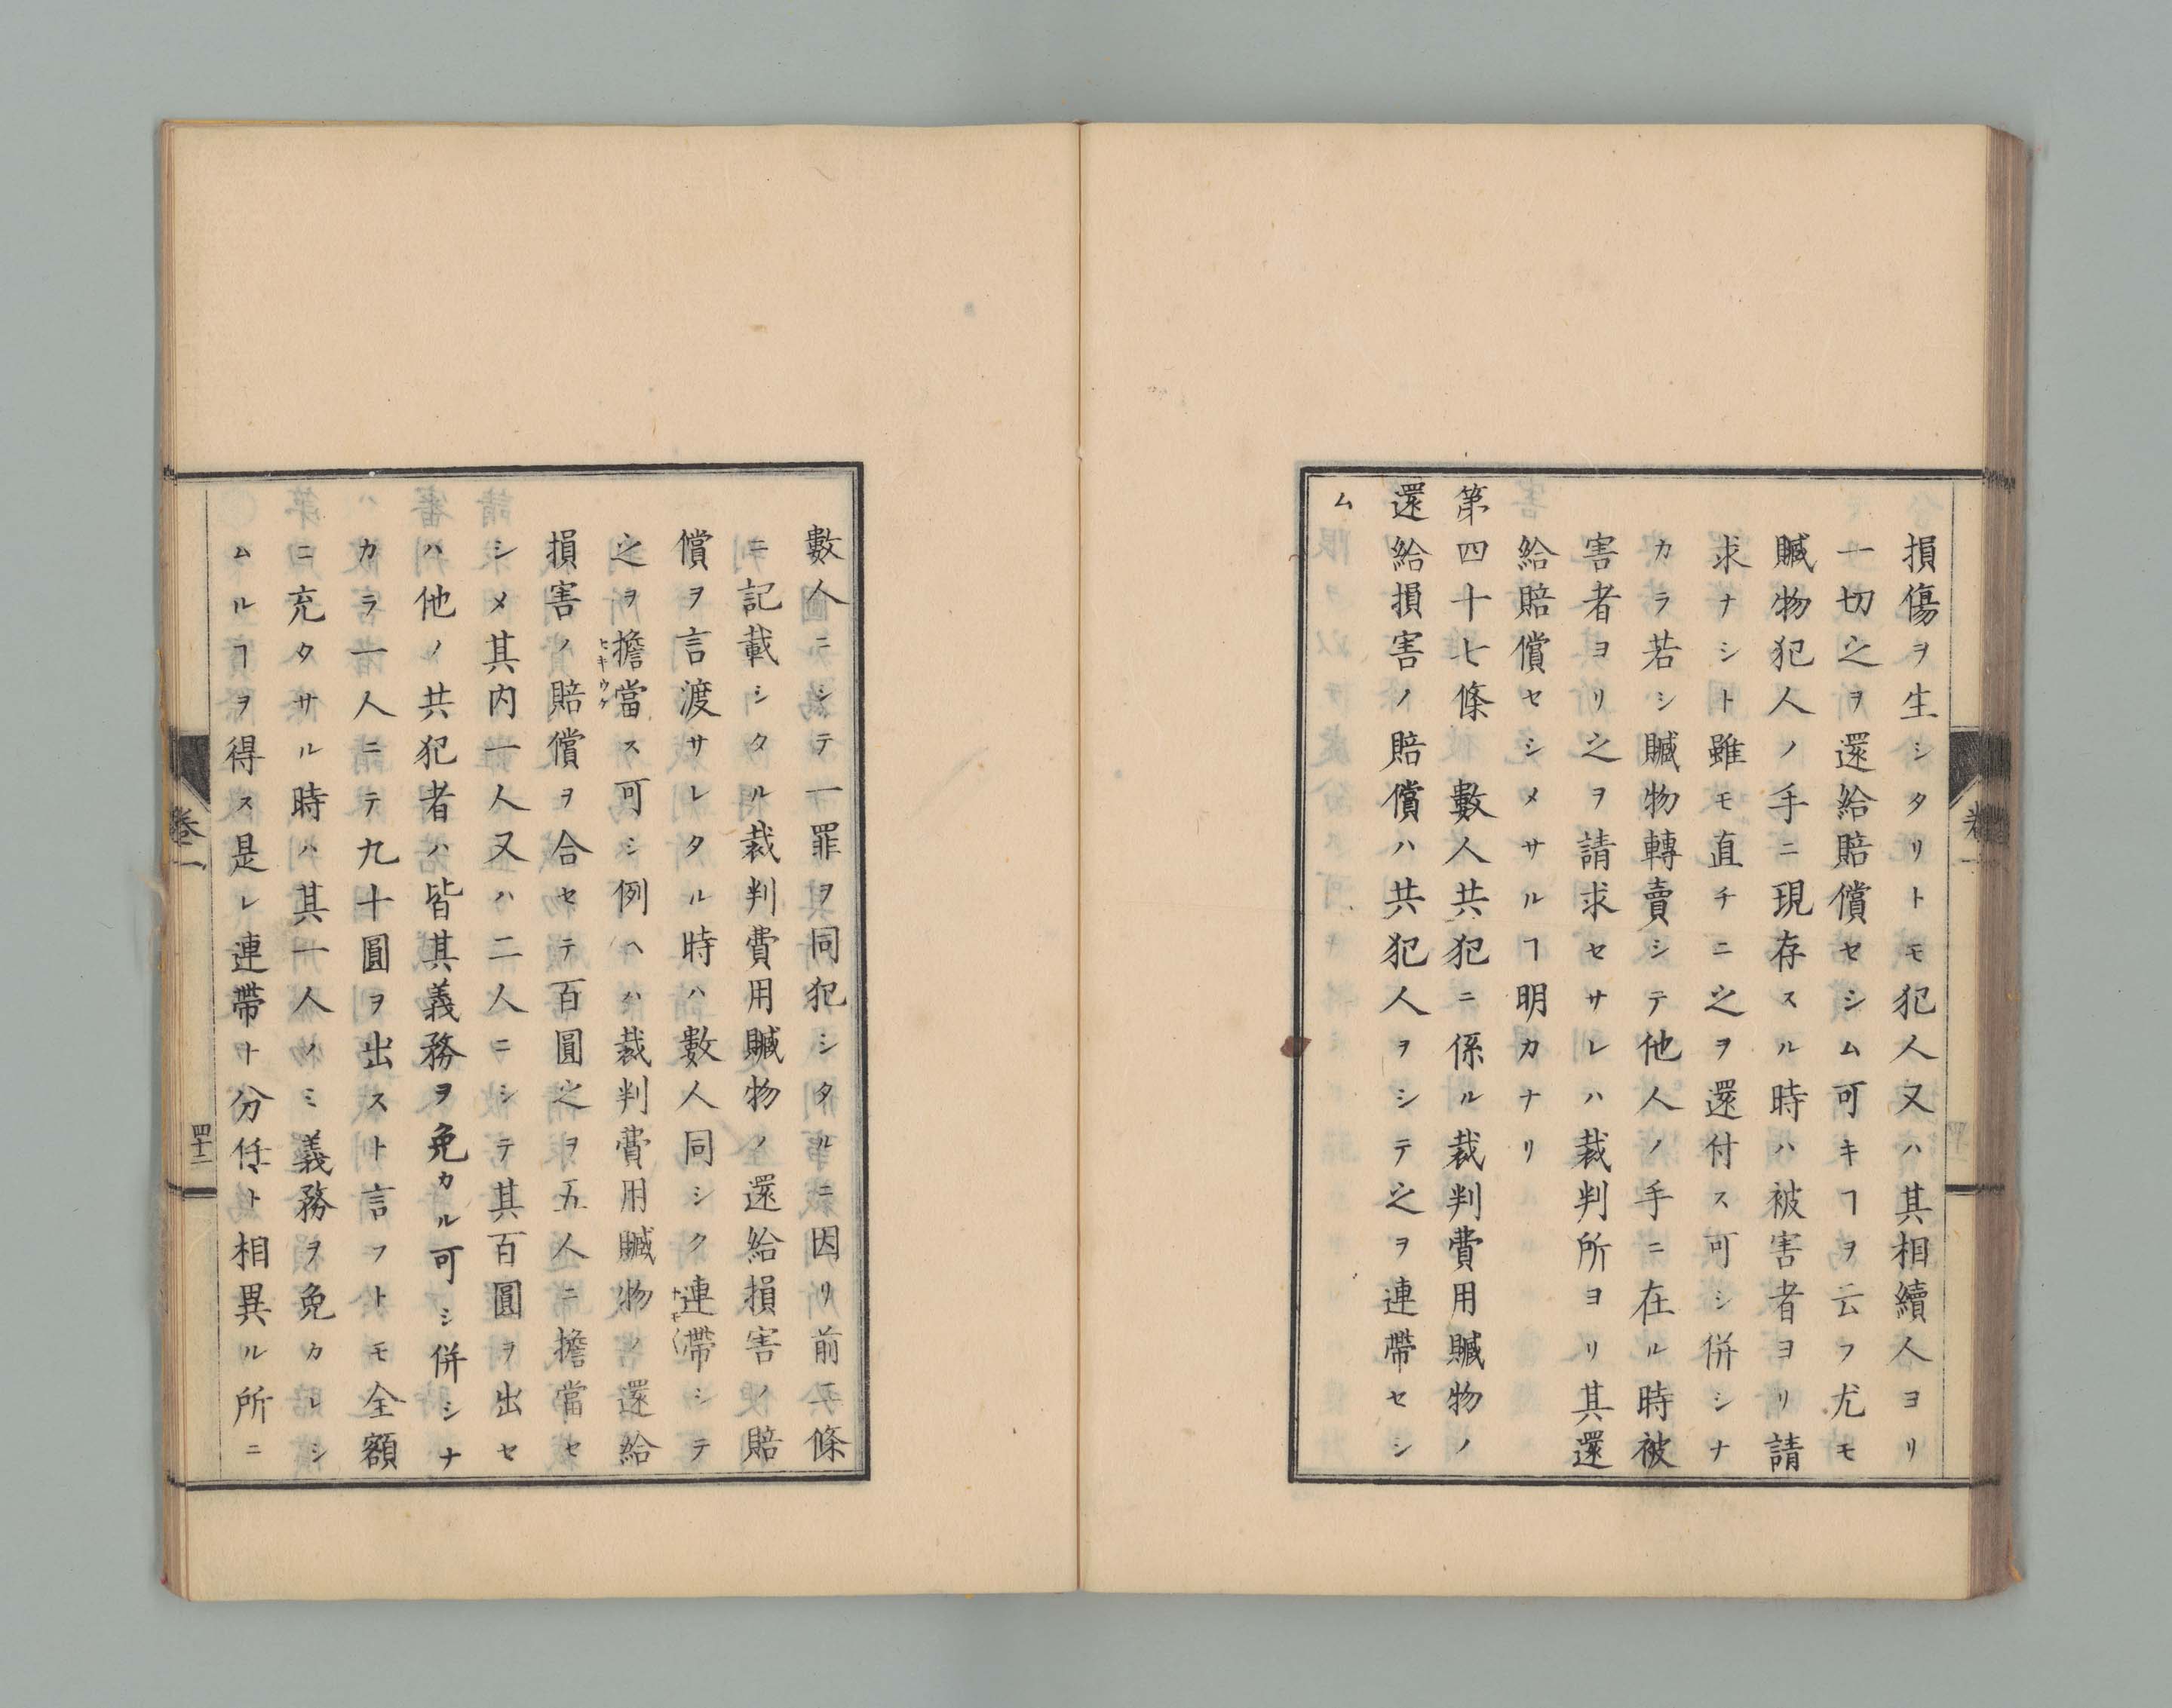 損傷ヲ生シタリトモ犯人又ハ其相續人ヨリ
一切之ヲ還給賠償セシム可キヿヲ云フ尤モ
贓物犯人ノ手ニ現存スル時ハ被害者ヨリ請
求ナシト雖モ直チニ之ヲ還付ス可シ併シナ
カラ若シ贓物轉賣シテ他人ノ手ニ在ル時被
害者ヨリ之ヲ請求セサレハ裁判所ヨリ其還
給賠償セシメサルヿ明カナリ
第四十七條 數人共犯ニ係ル裁判費用贓物ノ
還給損害ノ賠償ハ共犯人ヲシテ之ヲ連帶セシ
ム
卷一
數人ニシテ一罪ヲ同犯シタルニ因リ前五條
ニ記載シタル裁判費用贓物ノ還給損害ノ賠
償ヲ言渡サレタル時ハ數人同シク連帶シテ
之ヲ擔當ス可シ例ヘハ裁判費用贓物ノ還給
ヒキウケ
損害ノ賠償ヲ合セテ百圓之ヲ五人ニ擔當セ
シメ其内一人又ハ二人ニシテ其百圓ヲ出セ
ハ他ノ共犯者ハ皆其義務ヲ免カル可シ併シナ
カラ一人ニテ九十圓ヲ出スト言フトモ全額
ニ充タサル時ハ其一人ノミ義務ヲ免カレシ
ムルヿヲ得ス是レ連帶ト分任ト相異ル所ニ
卷一
四十二